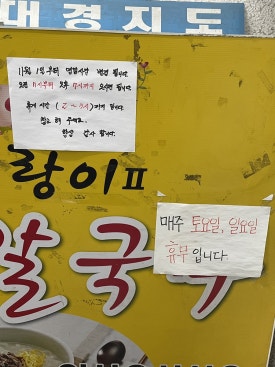 대경지도
11월 1일부터 영업시간 변경 됩니다.
오전 11시부터 오후 7시까지 오시면 됩니다.
휴게 시간 (2~4시)까지 입니다.
참고 하 주세요.
항상 감사 합니다.
랑이 II
매주 토요일, 일요일
휴무 입니다
칼국수